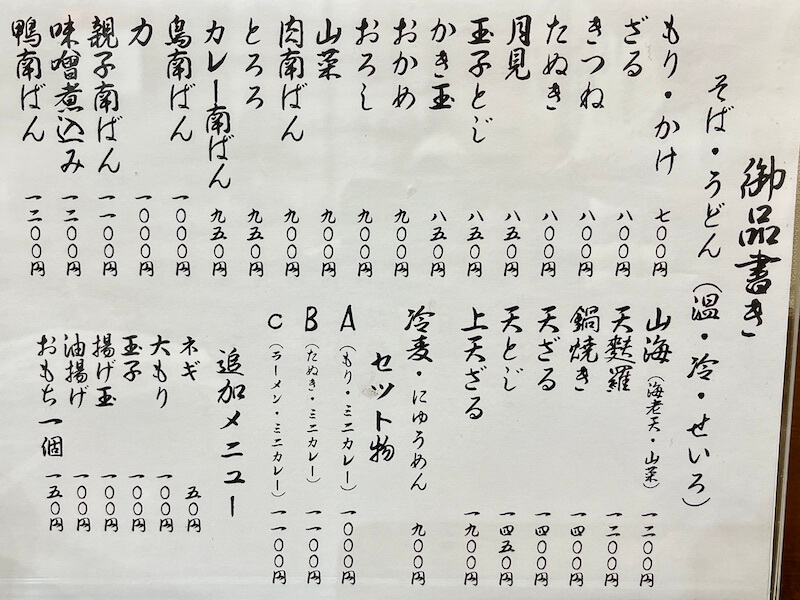 御品書き
そば・うどん(温・冷・せいろ)
もり・かけ 七〇〇円
ざる 八〇〇円
きつね 八〇〇円
たぬき 八〇〇円
月見 八五〇円
玉子とじ 八五〇円
かき玉 八五〇円
おかめ 九〇〇円
おろし 九〇〇円
山菜 九〇〇円
肉南ばん 九〇〇円
とろろ 九五〇円
カレー南ばん 九五〇円
鳥南ばん 一〇〇〇円
力 一〇〇〇円
親子南ばん 一一〇〇円
味噌煮込み 一二〇〇円
鴨南ばん 一二〇〇円
山海(海老天・山菜) 一二〇〇円
天麩羅 一二〇〇円
鍋焼き 一四〇〇円
天ざる 一四〇〇円
天とじ 一四五〇円
上天ざる 一九〇〇円
冷麦・にゅうめん 九〇〇円
セット物
A(もり・ミニカレー) 一〇〇〇円
B(たぬき・ミニカレー) 一一〇〇円
C(ラーメン・ミニカレー) 一一〇〇円
追加メニュー
ネギ 五〇円
大もり 一〇〇円
玉子 一〇〇円
揚げ玉 一〇〇円
油揚げ 一〇〇円
おもち一個 一五〇円